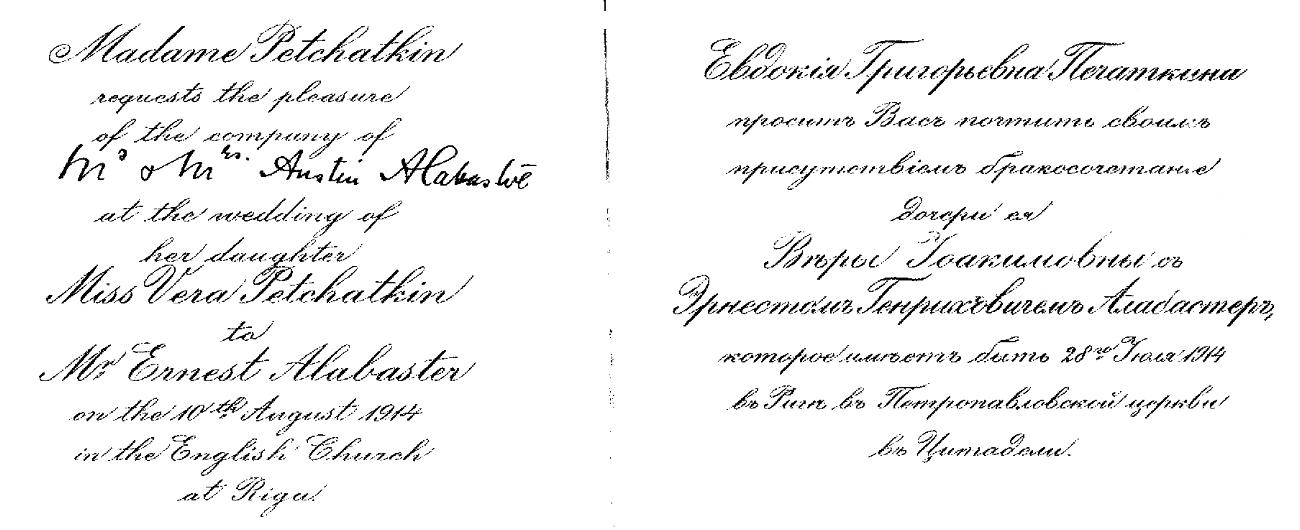 Madame Petchatkin
requests the pleasure
of the company of
Mr & Mrs. Austin Alabaster
at the wedding of
her daughter
Miss Vera Petchatkin
to
Mr Ernest Alabaster
on the 10th August 1914
in the English Church
at Riga.
Евдокія Григорьевна Печаткина
проситъ Васъ почтить своимъ
присутствіемъ бракосочетаніе
дочери ея
Вѣры Іоакимовны съ
Эрнестомъ Генриховичемъ Алабастеръ,
которое имѣетъ быть 28го Іюля 1914
въ Ригѣ въ Петропавловской церкви
въ Цитадели.